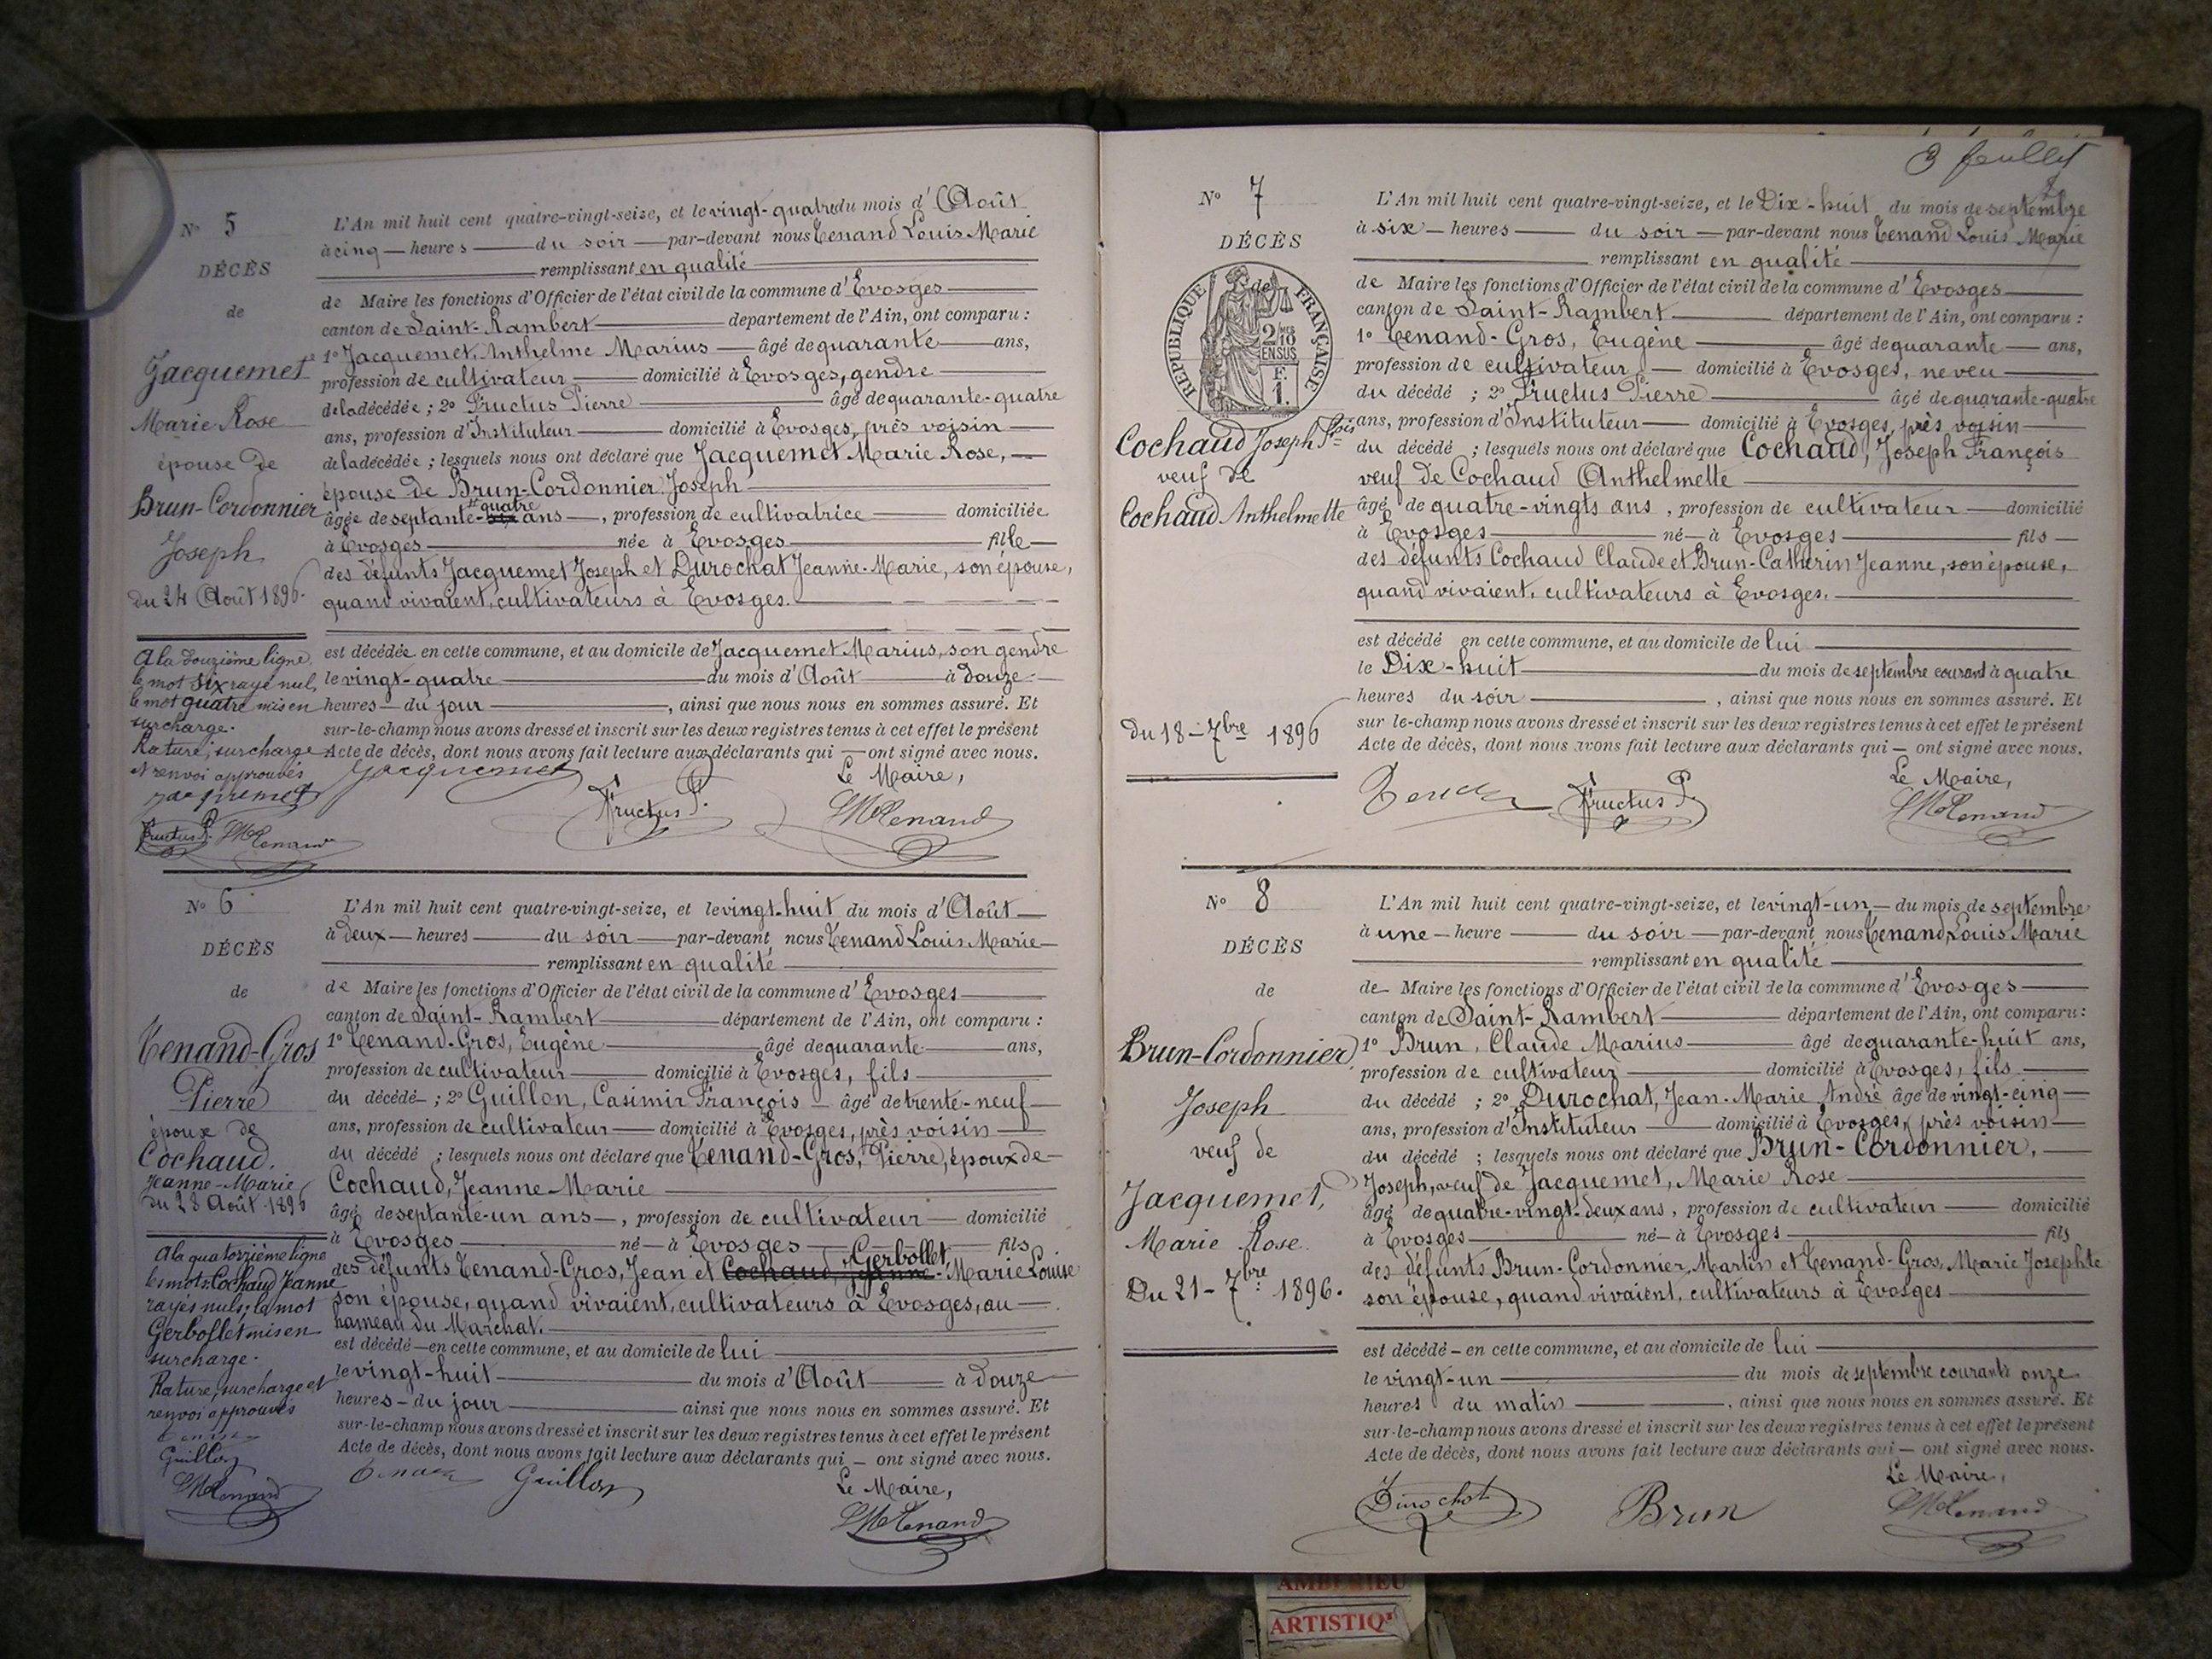 N° 5
DÉCÈS
de
Jacquemet
Marie Rose
épouse de
Brun-Cordonnier
Joseph
du 24 Août 1896.
A la douzième ligne,
le mot six rayé nul,
le mot quatre mis en
surcharge.
Rature, surcharge
et renvoi approuvés
Jacquemet
Fructus P. LM Tenand
L'An mil huit cent quatre-vingt-seize, et le vingt-quatre du mois d'Août
à cinq heures du soir par-devant nous Tenand Louis Marie
remplissant en qualité
de Maire les fonctions d'Officier de l'état civil de la commune d'Evosges
canton de Saint-Rambert département de l'Ain, ont comparu :
1° Jacquemet, Anthelme Marius âgé de quarante ans,
profession de cultivateur domicilié à Evosges, gendre
de la décédée ; 2° Fructus Pierre âgé de quarante-quatre
ans, profession d'Instituteur domicilié à Evosges, près voisin
de la décédée ; lesquels nous ont déclaré que Jacquemet Marie Rose,
épouse de Brun-Cordonnier Joseph
quatre
âgée de septante-six ans, profession de cultivatrice domiciliée
à Evosges née à Evosges fille
des défunts Jacquemet Joseph et Durochat Jeanne-Marie, son épouse,
quand vivaient, cultivateurs à Evosges.
est décédée en cette commune, et au domicile de Jacquemet Marius, son gendre
le vingt-quatre du mois d'Août à douze
heures du jour, ainsi que nous nous en sommes assuré. Et
sur-le-champ nous avons dressé et inscrit sur les deux registres tenus à cet effet le présent
Acte de décès, dont nous avons fait lecture aux déclarants qui ont signé avec nous.
Le Maire,
Jacquemet Fructus P. LM Tenand
N° 6
DÉCÈS
de
Tenand-Gros
Pierre
époux de
Cochaud,
Jeanne-Marie
du 28 Août 1896
A la quatorzième ligne
les mots Cochaud Jeanne
rayés nuls; le mot
Gerbollet mis en
surcharge.
Rature, surcharge et
renvoi approuvés
Guillon
LM Tenand
L'An mil huit cent quatre-vingt-seize, et le vingt-huit du mois d'Août
à deux heures du soir par-devant nous Tenand Louis Marie
remplissant en qualité
de Maire les fonctions d'Officier de l'état civil de la commune d'Evosges
canton de Saint-Rambert département de l'Ain, ont comparu :
1° Tenand-Gros, Eugène âgé de quarante ans,
profession de cultivateur domicilié à Evosges, fils
du décédé ; 2° Guillon, Casimir François âgé de trente-neuf
ans, profession de cultivateur domicilié à Evosges, près voisin
du décédé ; lesquels nous ont déclaré que Tenand-Gros, Pierre, époux de
Cochaud, Jeanne-Marie
âgé de septante-un ans, profession de cultivateur domicilié
à Evosges né à Evosges fils
Gerbollet
des défunts Tenand-Gros, Jean et Cochaud, Jeanne-Marie Louise
son épouse, quand vivaient, cultivateurs à Evosges, au
hameau du Marchat.
est décédé en cette commune, et au domicile de lui
le vingt-huit du mois d'Août à douze
heures du jour ainsi que nous nous en sommes assuré. Et
sur-le-champ nous avons dressé et inscrit sur les deux registres tenus à cet effet le présent
Acte de décès, dont nous avons fait lecture aux déclarants qui ont signé avec nous.
Guillon Le Maire,
LM Tenand
3 feuillet
N° 7
DÉCÈS
de
RÉPUBLIQUE FRANÇAISE
2 MES 10 EN SUS
F. 1.
Cochaud Joseph Fçois
veuf de
Cochaud Anthelmette
du 18 - 7bre 1896
L'An mil huit cent quatre-vingt-seize, et le Dix-huit du mois de septembre
à six heures du soir par-devant nous Tenand Louis Marie
remplissant en qualité
de Maire les fonctions d'Officier de l'état civil de la commune d'Evosges
canton de Saint-Rambert département de l'Ain, ont comparu :
1° Tenand-Gros, Eugène âgé de quarante ans,
profession de cultivateur domicilié à Evosges, neveu
du décédé ; 2° Fructus Pierre âgé de quarante-quatre
ans, profession d'Instituteur domicilié à Evosges, près voisin
du décédé ; lesquels nous ont déclaré que Cochaud, Joseph François
veuf de Cochaud Anthelmette
âgé de quatre-vingts ans, profession de cultivateur domicilié
à Evosges né à Evosges fils
des défunts Cochaud Claude et Brun-Catherin Jeanne, son épouse,
quand vivaient, cultivateurs à Evosges.
est décédé en cette commune, et au domicile de lui
le Dix-huit du mois de septembre courant à quatre
heures du soir, ainsi que nous nous en sommes assuré. Et
sur le-champ nous avons dressé et inscrit sur les deux registres tenus à cet effet le présent
Acte de décès, dont nous avons fait lecture aux déclarants qui ont signé avec nous.
Le Maire,
Fructus P. LM Tenand
N° 8
DÉCÈS
de
Brun-Cordonnier,
Joseph
veuf de
Jacquemet,
Marie Rose.
Du 21 - 7bre 1896.
L'An mil huit cent quatre-vingt-seize, et le vingt-un du mois de septembre
à une heure du soir par-devant nous Tenand Louis Marie
remplissant en qualité
de Maire les fonctions d'Officier de l'état civil de la commune d'Evosges
canton de Saint-Rambert département de l'Ain, ont comparu :
1° Brun, Claude Marius âgé de quarante-huit ans,
profession de cultivateur domicilié à Evosges, fils
du décédé ; 2° Durochat, Jean-Marie André âgé de vingt-cinq
ans, profession d'Instituteur domicilié à Evosges, près voisin
du décédé ; lesquels nous ont déclaré que Brun-Cordonnier,
Joseph, veuf de Jacquemet, Marie Rose
âgé de quatre-vingt-deux ans, profession de cultivateur domicilié
à Evosges né à Evosges fils
des défunts Brun-Cordonnier, Martin et Tenand-Gros, Marie Josephte
son épouse, quand vivaient, cultivateurs à Evosges
est décédé en cette commune, et au domicile de lui
le vingt-un du mois de septembre courant à onze
heures du matin, ainsi que nous nous en sommes assuré. Et
sur-le-champ nous avons dressé et inscrit sur les deux registres tenus à cet effet le présent
Acte de décès, dont nous avons fait lecture aux déclarants qui ont signé avec nous.
Le Maire,
Durochat Brun LM Tenand
ARTISTIQ